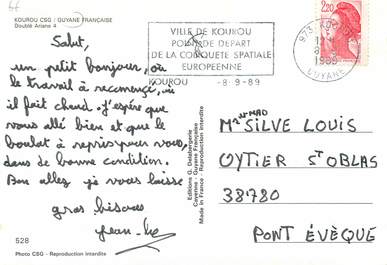 KOUROU CSG : GUYANE FRANÇAISE
Doublé Ariane 4
Salut,
un petit bonjour, où
le travail à recomencé, où
il fait chaud. J'espère que
vous allé bien et que le
boulot à repris pour vous,
dans de bonne condition.
Bon allez je vous laisse
gros bisous
Jean-
528
Photo CSG - Reproduction interdite
Editions G. Delabergerie
Cayenne - Guyane Française
Made in France - Reproduction interdite
VILLE DE KOUROU
POINT DE DEPART
DE LA CONQUETE SPATIALE
EUROPEENNE
KOUROU -8-9-89
973 KOUROU
1989
GUYANE
2,20
Mr et MAD
SILVE LOUIS
OYTIER ST OBLAS
38780
PONT ÉVÈQUE